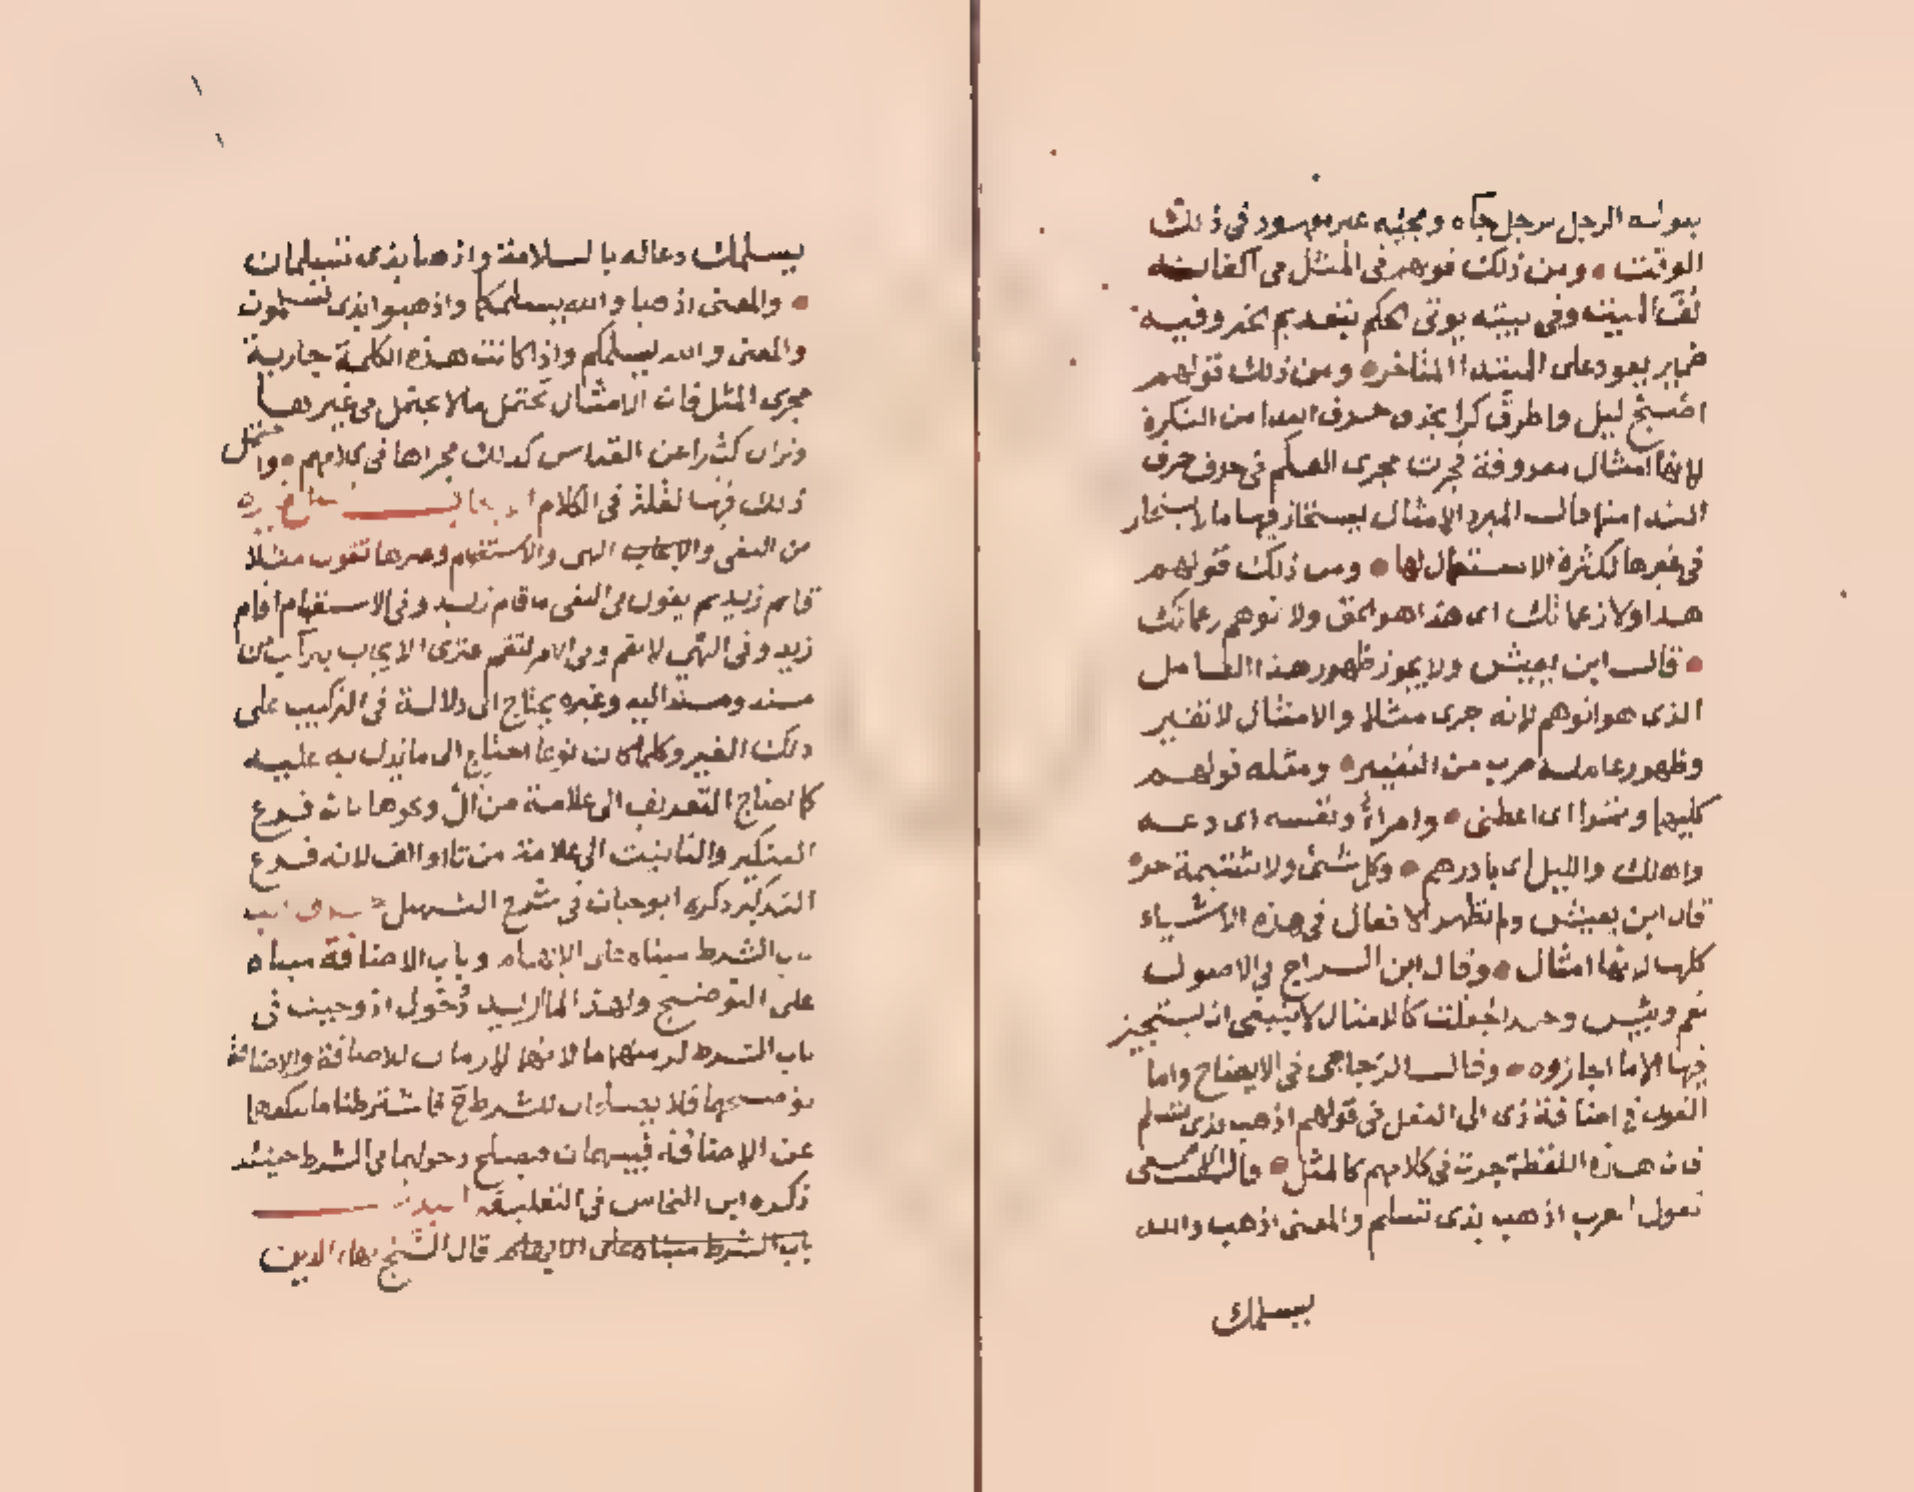 الرجل لرجل جاه ومجيئه غير معهود في ذلك
الوقت ومن ذلك قولهم في المثل في اكفانه
لف الميت وفي بيته يوتى الحكم بتقديم الخبر وفيه
ضمير يعود على المبتدا المتاخر ومن ذلك قولهم
اصبح ليل واطرق كرا بحذف حرف الندا من النكرة
لانها امثال معروفة فجرت مجرى العلم في حذف حرف
الندا منها قال المبرد الامثال يستجاز فيها ما لا يستجاز
في غيرها لكثرة الاستعمال لها ومن ذلك قولهم
هذا ولا زعماتك اى هذا هو الحق ولا توهم زعماتك
قال ابن يعيش ولا يجوز ظهور هذا العامل
الذى هو اتوهم لانه جرى مثلا والامثال لا تغير
وظهور عامله ضرب من التغيير ومثله قولهم
كليهما وتمرا اى اعطنى وامرأ ونفسه اى دعه
واهلك والليل اى بادرهم وكل شئ ولا شتيمة حر
قال ابن يعيش ولم تظهر الافعال في هذه الاشياء
كلها لانها امثال وقال ابن السراج في الاصول
نعم وبئس وحبذا جعلت كالامثال لا ينبغى ان يستجيز
فيها الا ما اجازوه وقال الزجاجى في الايضاح واما
القول في اضافة ذى الى الفعل في قولهم اذهب بذى تسلم
فان هذه اللفظة جرت في كلامهم كالمثل قال الاصمعى
تقول العرب اذهب بذى تسلم والمعنى اذهب والله
يسلمك
يسلمك دعا له بالسلامة واذهبا بذى تسلمان
والمعنى اذهبا والله يسلمكما واذهبوا بذى تسلمون
والمعنى والله يسلمكم واذا كانت هذه الكلمة جارية
مجرى المثل فان الامثال تحتمل ما لا يحتمل في غيرها
وتزال كثيرا عن القياس كذلك مجراها في كلامهم واحتمل
ذلك فيها لقلته في الكلام
من النفى والنهى والاستفهام وغيرها تقول مثلا
قام زيد ثم يقول في النفى ما قام زيد وفي الاستفهام اقام
زيد وفي النهى لا يقم وفي الامر ليقم فترى الايجاب يتركب من
مسند ومسند اليه وغيره يحتاج الى دلالة في التركيب على
ذلك الغير وكلما كان فرعا احتاج الى ما يدل به عليه
كما احتاج التعريف الى علامة من ال ونحوها لانه فرع
التنكير والتانيث الى علامة من تا او الف لانه فرع
التذكير ذكره ابوحيان في شرح التسهيل
باب الشرط مبناه على الابهام وباب الاضافة مبناه
على التوضيح ولهذا لما اريد دخول اذ وحيث في
باب الشرط لزمتهما ما لانهما لازمان للاضافة والاضافة
توضحهما فلا يصلحان للشرط ح فاشترطنا ما لتكفهما
عن الاضافة فيبهمان فيصلح دخولهما في الشرط حينئذ
ذكره ابن النحاس في التعليقة
باب الشرط مبناه على الابهام قال الشيخ بهاء الدين